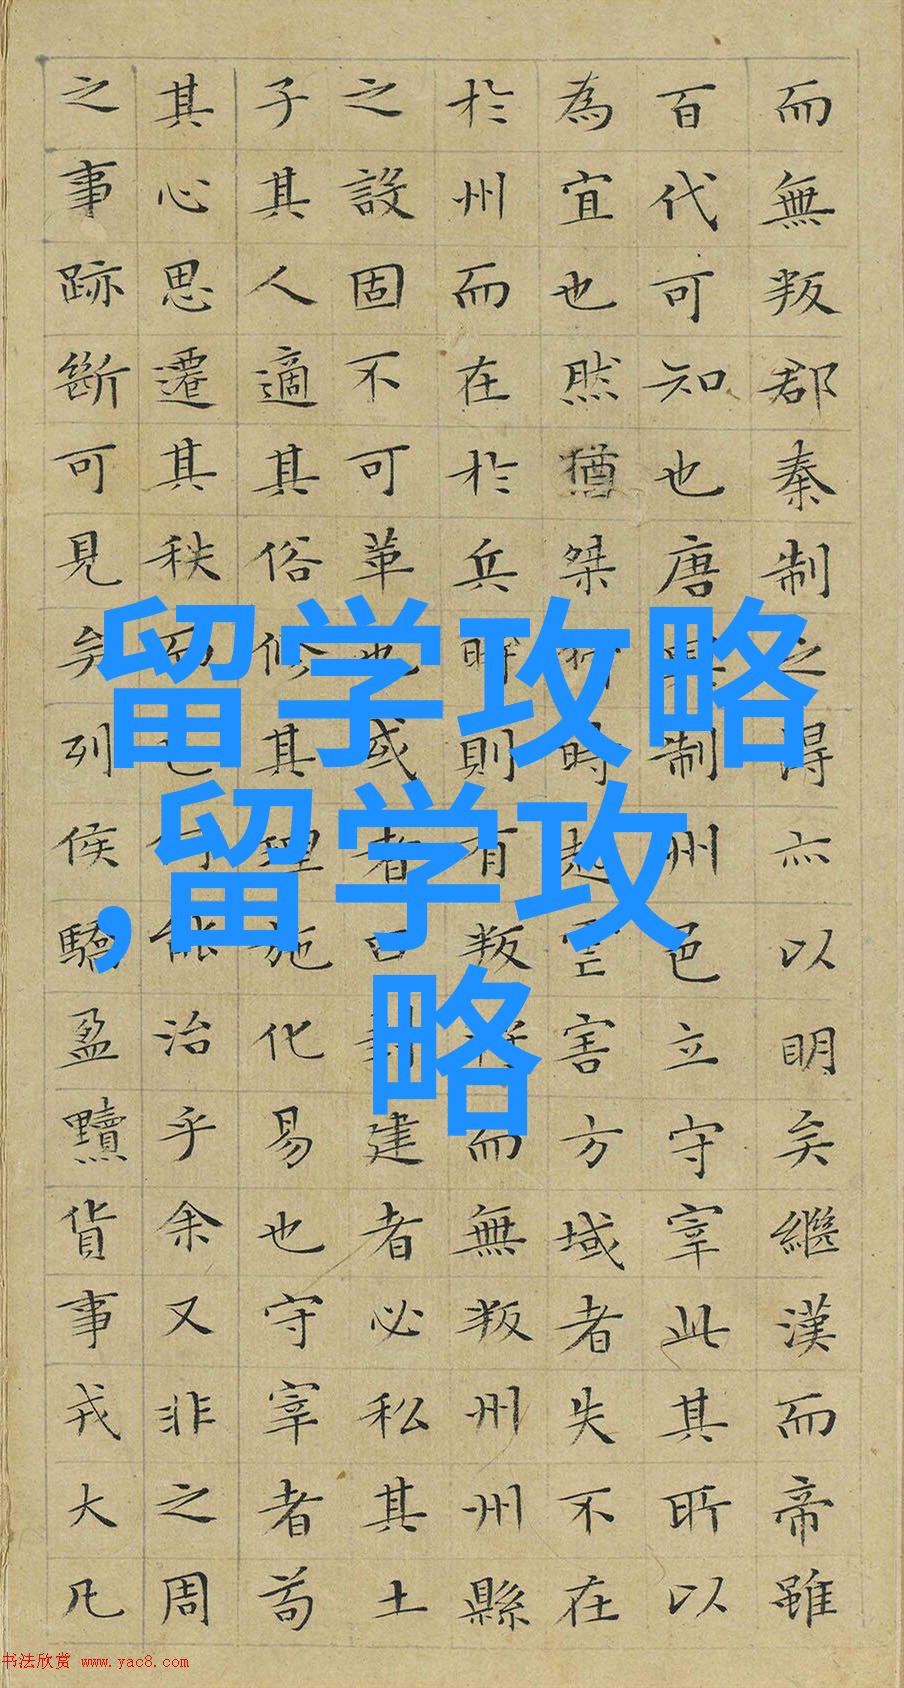 而無叛郡秦制之得亦以明矣繼漢而帝雖
百代可知也唐興制州邑立守宰此其所以
為宜也然猶桀猾時起虐害方域者失不在
於州而在於兵時則有叛將而無叛州州縣
之設固不可革也或者曰封建者必私其土
子其人適其俗修其理施化易也守宰者苟
其心思遷其秩而已何能治乎余又非之周
之事跡斷可見矣列侯驕盈黷貨事戎大凡
留学攻略
,留学攻
略
书法欣赏 www.yac8.com